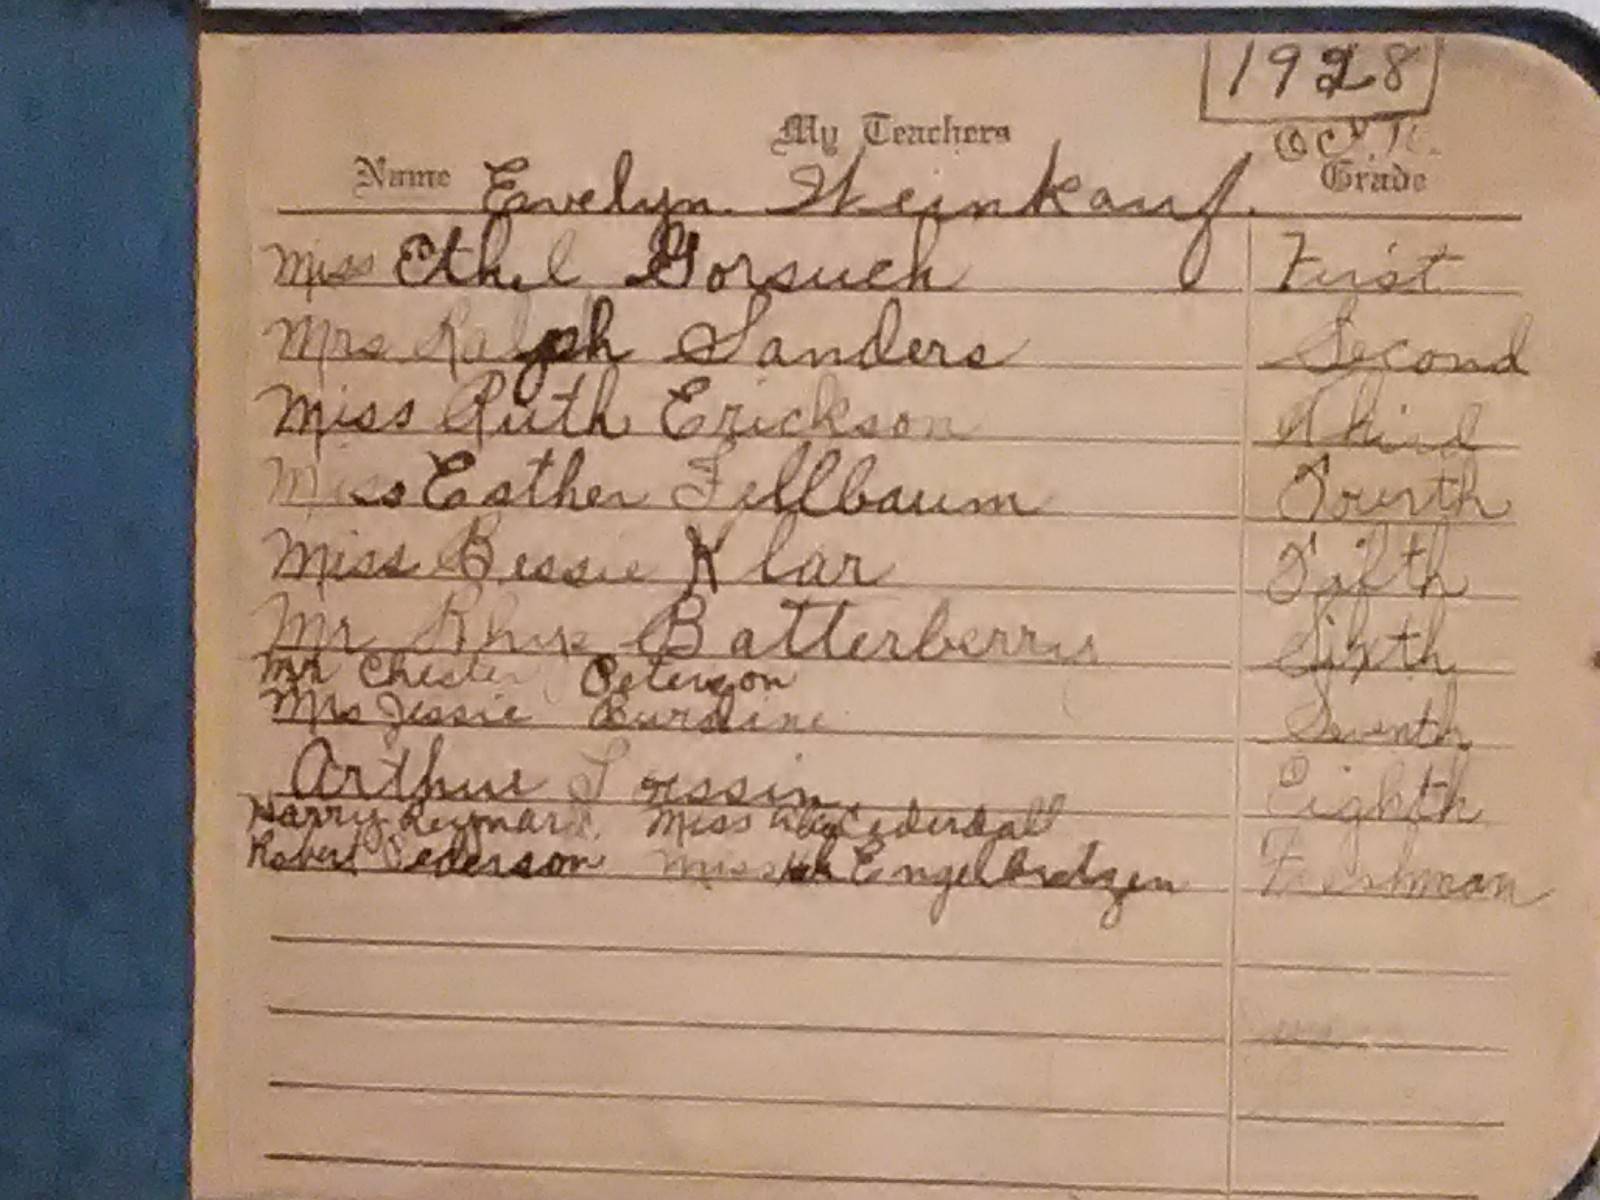 1928
My Teachers
Name Evelyn Weinkauf. Grade
Miss Ethel Gorsuch First
Mrs Ralph Sanders Second
Miss Ruth Erickson Third
Miss Esther Fellbaum Fourth
Miss Bessie Klar Fifth
Mr Batterberry Sixth
Mr Chester Peterson
Mrs Jessie Burdine Seventh
Arthur Eighth
Harry Reynard. Miss Cederdall
Robert Pederson Miss Freshman